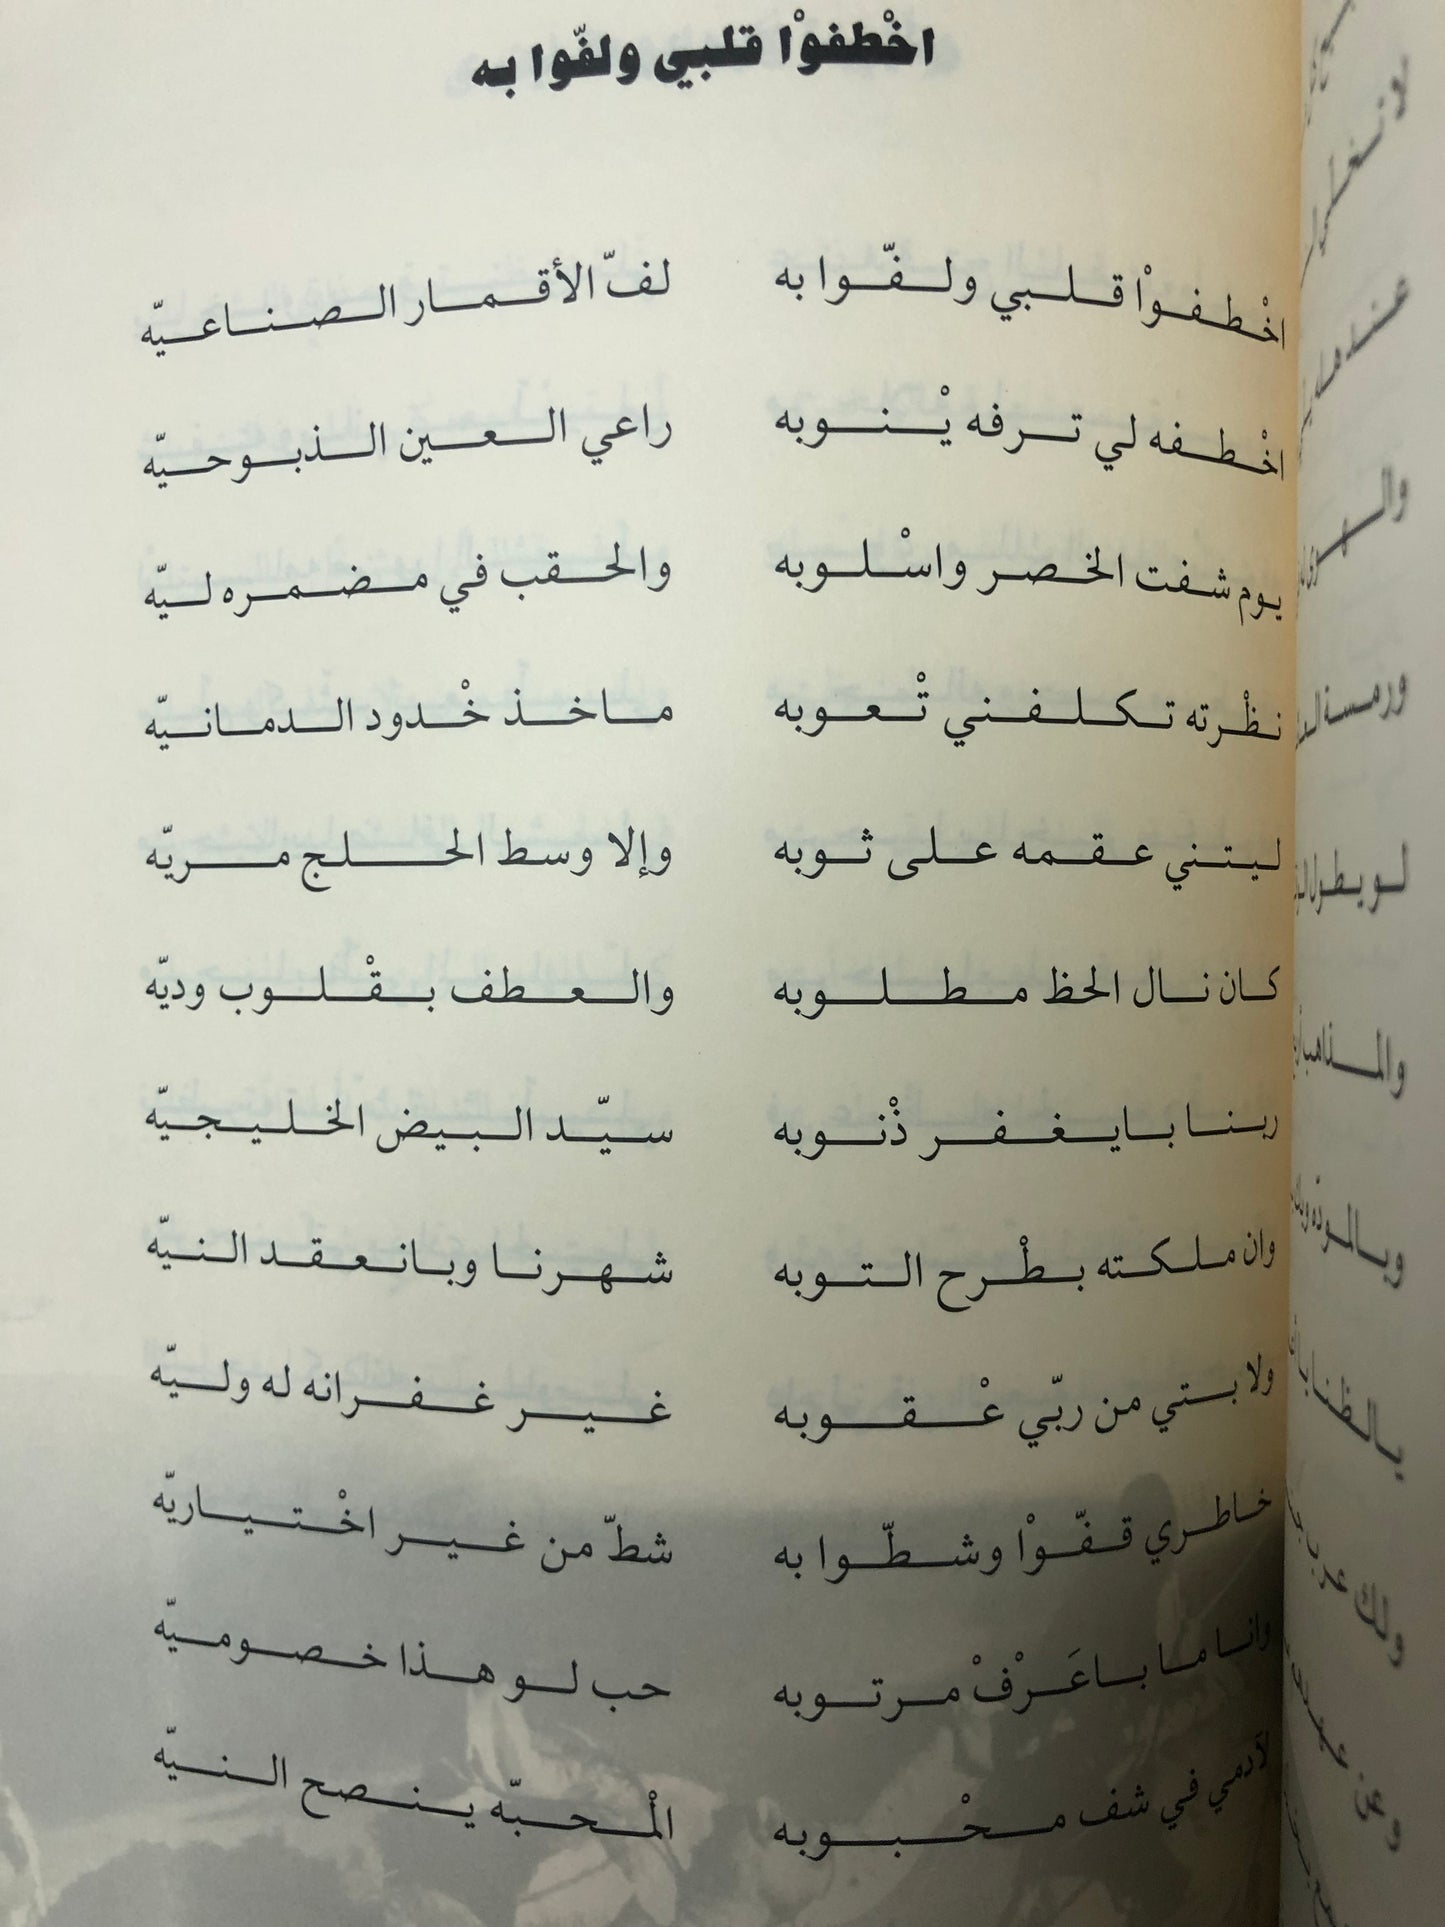 اخْطفوْا قلبي ولفّوا به
اخْطفوْا قلبي ولفّوا به لفّ الأقمار الصناعيّه
اخْطفه لي ترفه يْنوبه راعي العين الذبوحيّه
يوم شفت الخصر واسْلوبه والحقب في مضمره ليّه
نظْرته تكلفني تْعوبه ماخذ خْدود الدمانيّه
ليتني عقمه على ثوبه وإلا وسط الحلج مريّه
كان نال الحظ مطلوبه والعطف بقْلوب وديّه
ربنا بايغفر ذْنوبه سيّد البيض الخليجيّه
وان ملكته بطْرح التوبه شهرنا وبانعقد النيّه
ولا بستي من ربّي عْقوبه غير غفرانه له وليّه
خاطري قفّوْا وشطّوا به شطّ من غير اخْتياريّه
وانا ما باعَرْفْ مرتوبه حب لو هذا خصوميّه
لآدمي في شف محْبوبه الْمحبّه ينصح النيّه